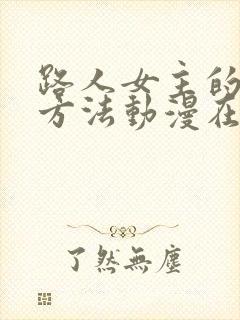 路人女主的
方法動漫在
了然無塵